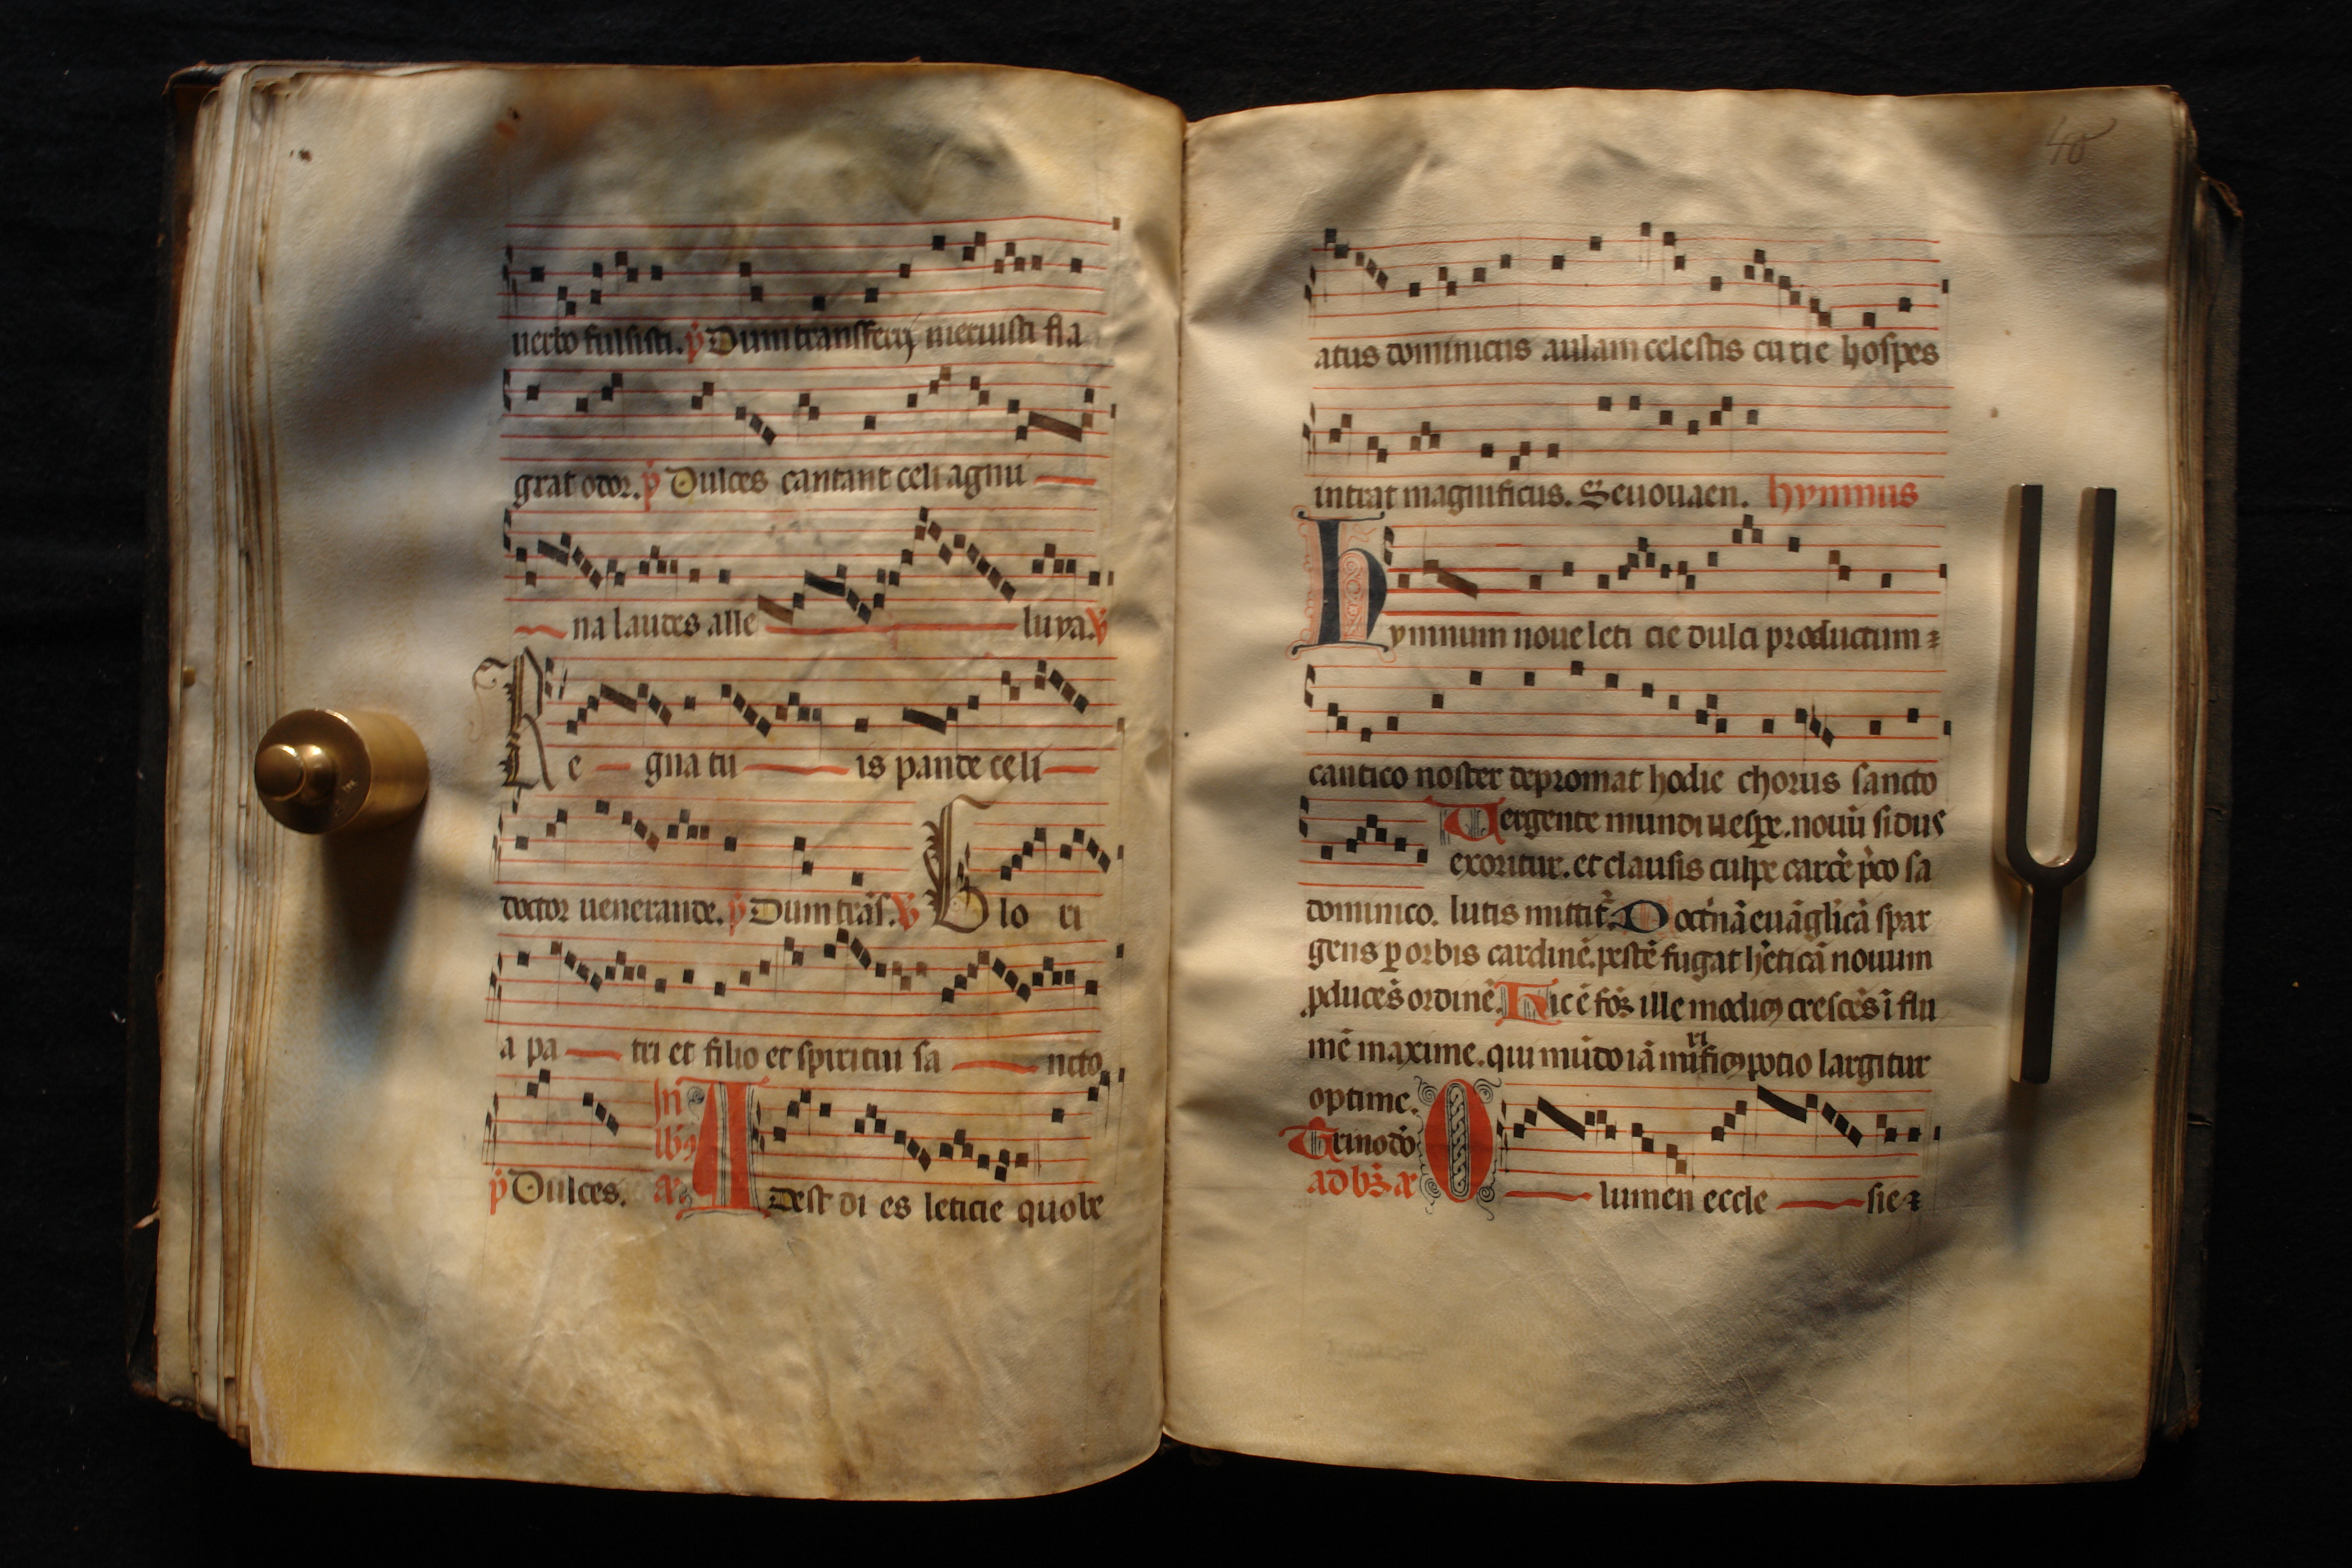 uerbo fulsisti. p̃ Dum transfers meruisti fla
grat odor. p̃ Dulces cantant celi agmi
na laudes alle luya. V
Re gna tu is pande celi
doctor uenerande. p̃ Dum trās. V Glo ri
a pa tri et filio et spiritui sa ncto
p̃ Dulces. In lb9 añ Adest di es leticie quo be
40
atus dominicus aulam celestis curie hospes
intrat magnificus. Seuouaen. hymnus
hymnum noue leti cie dulci productum
cantico noster depromat hodie chorus sancto
Uergente mundi uespe. nouū sidus
exoritur. et clausis culpe carcē p̄co sa
dominico. lutis mittit̃. Doct̾nā euāglicā spar
gens ꝑ orbis cardinē. pestē fugat h̾eticā nouum
ꝓducēs ordinē. Hic ē fōs ille modic9 crescēs ī flu
mē maxime. qui mūdo iā mirific9 potio largitur
optime.
Trino dō
ad bñs añ O lumen eccle sie